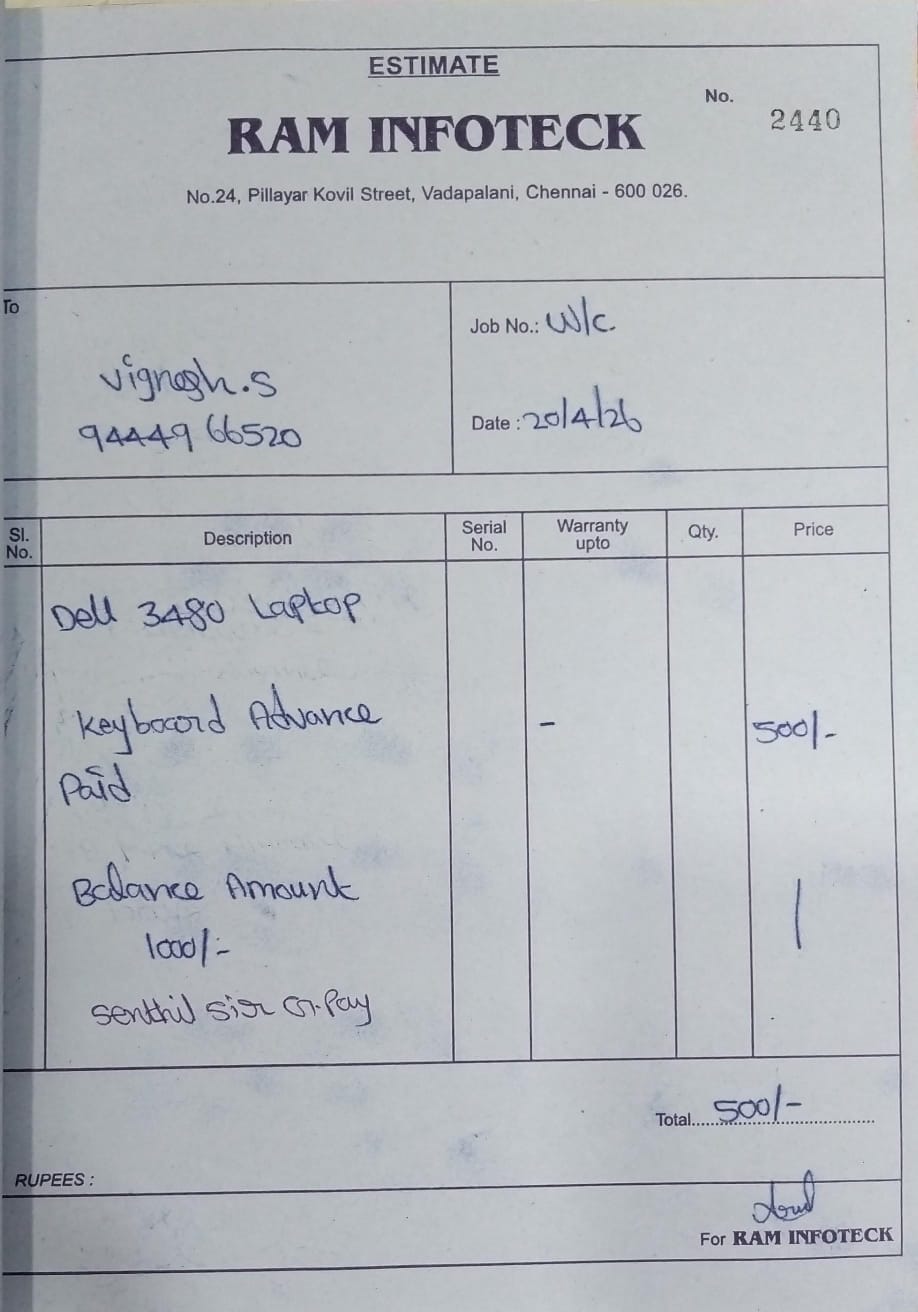 ESTIMATE
No. 2440
RAM INFOTECK
No.24, Pillayar Kovil Street, Vadapalani, Chennai - 600 026.
To
Vignesh.S
94449 66520
Job No.: W/c.
Date : 20/4/26
Sl. No. Description Serial No. Warranty upto Qty. Price
Dell 3480 Laptop
Keyboard Advance - 500/-
Paid
Balance Amount
1000/-
Senthil Sir G.Pay
Total 500/-
RUPEES :
For RAM INFOTECK